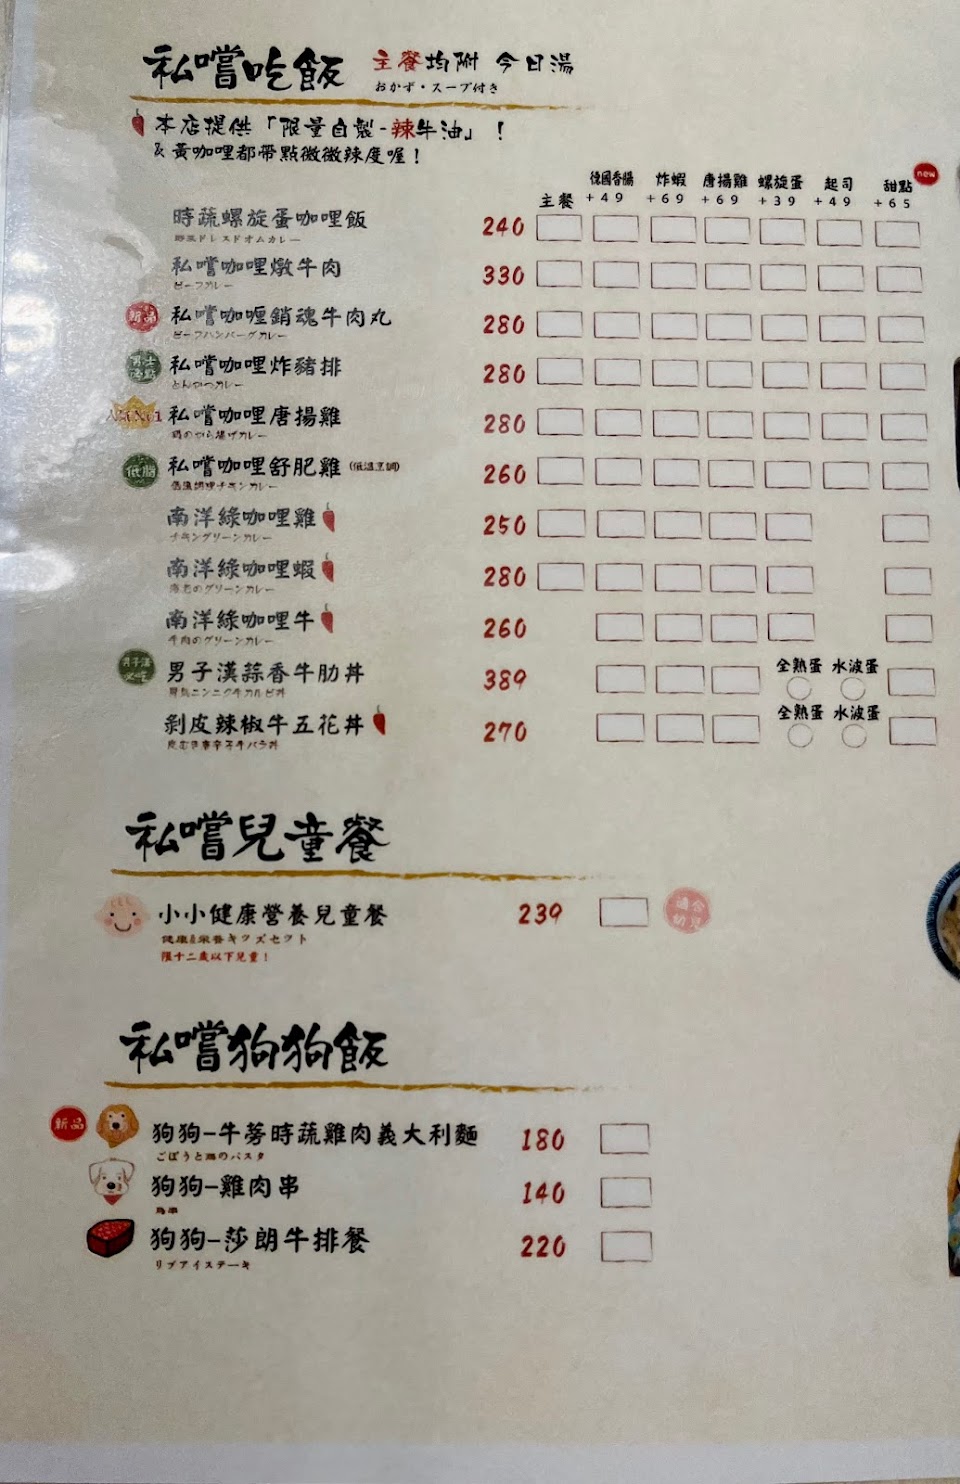 私嚐吃飯 主餐均附 今日湯
おかず・スープ付き
本店提供「限量自製-辣牛油」！
& 黃咖哩都帶點微微辣度喔！
主餐 德國香腸 炸蝦 唐揚雞 螺旋蛋 起司 甜點 new
+49 +69 +69 +39 +49 +65
時蔬螺旋蛋咖哩飯 240
野菜ドレスドオムカレー
私嚐咖哩燉牛肉 330
ビーフカレー
新品 私嚐咖喱銷魂牛肉丸 280
ビーフハンバーグカレー
私嚐咖哩炸豬排 280
とんかつカレー
私嚐咖哩唐揚雞 280
鶏のから揚げカレー
低脂 私嚐咖哩舒肥雞 (低溫烹調) 260
低温調理チキンカレー
南洋綠咖哩雞 250
チキングリーンカレー
南洋綠咖哩蝦 280
海老のグリーンカレー
南洋綠咖哩牛 260
牛肉のグリーンカレー
男子漢蒜香牛肋丼 389 全熟蛋 水波蛋
男気ニンニク牛カルビ丼
剝皮辣椒牛五花丼 270 全熟蛋 水波蛋
皮むき唐辛子牛バラ丼
私嚐兒童餐
小小健康營養兒童餐 239 適合幼兒
健康&栄養キッズセット
限十二歲以下兒童！
私嚐狗狗飯
新品 狗狗-牛蒡時蔬雞肉義大利麵 180
ごぼうと鶏のパスタ
狗狗-雞肉串 140
鳥串
狗狗-莎朗牛排餐 220
リブアイステーキ